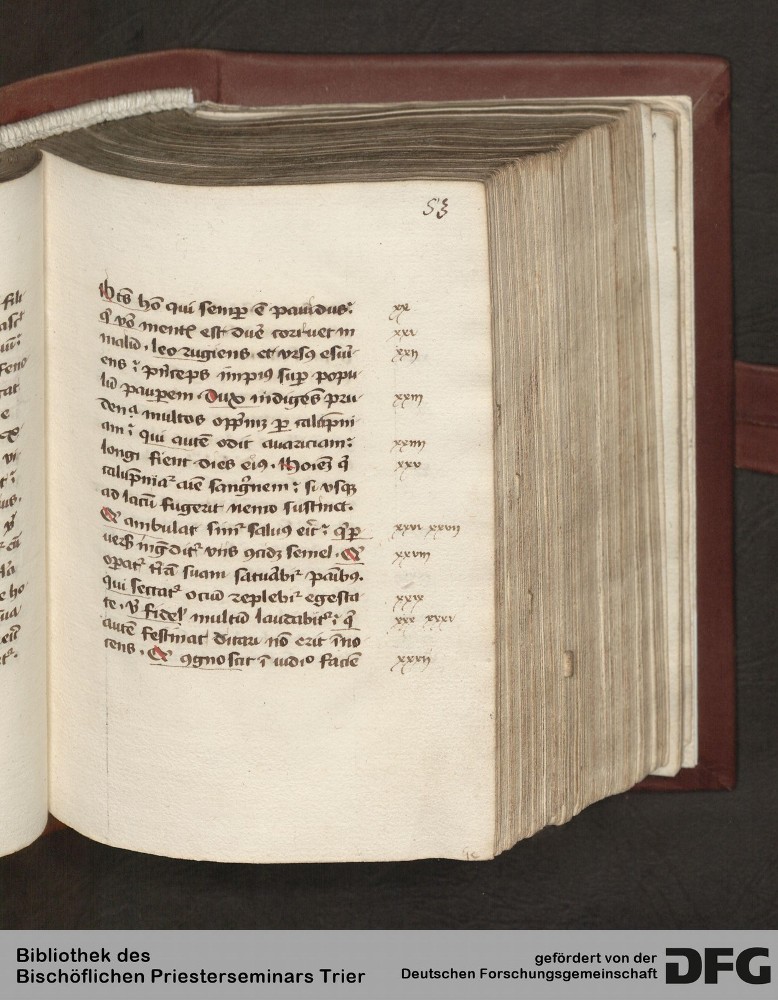 53
Btūs hō qui semp ē pauidus:
xx
q̄ vō mentē est dure corruet in
xxi
malū. leo rugiens et ursꝯ esuri-
xxii
ens: prīceps impius sup popu
lū paupem. Dux indigēs pru-
xxiii
multos oppmꝫ p calūpni
am: qui autē odit auariciam:
xxiiii
longi fient dies eiꝯ. Hoīem q̄
xxv
calūpniat aīe sangnem: si usqꝫ
ad lacū fugerit nemo sustinet.
Qi ambulat simꝉ saluꝯ erit: q̄ p
xxvi xxvii
semel. Qi
xxviii
opat trā suam satiabit panibꝯ.
qui sectat ociū replebit egesta
xxix
te. Vir fidel multū laudabit: q̄
xxx xxxi
autē festinat ditari nō erit īno
cens. Qi ꝯgnoscit ī iudiō faciē
xxxii
Bibliothek des
Bischöflichen Priesterseminars Trier
gefördert von der
Deutschen Forschungsgemeinschaft
DFG